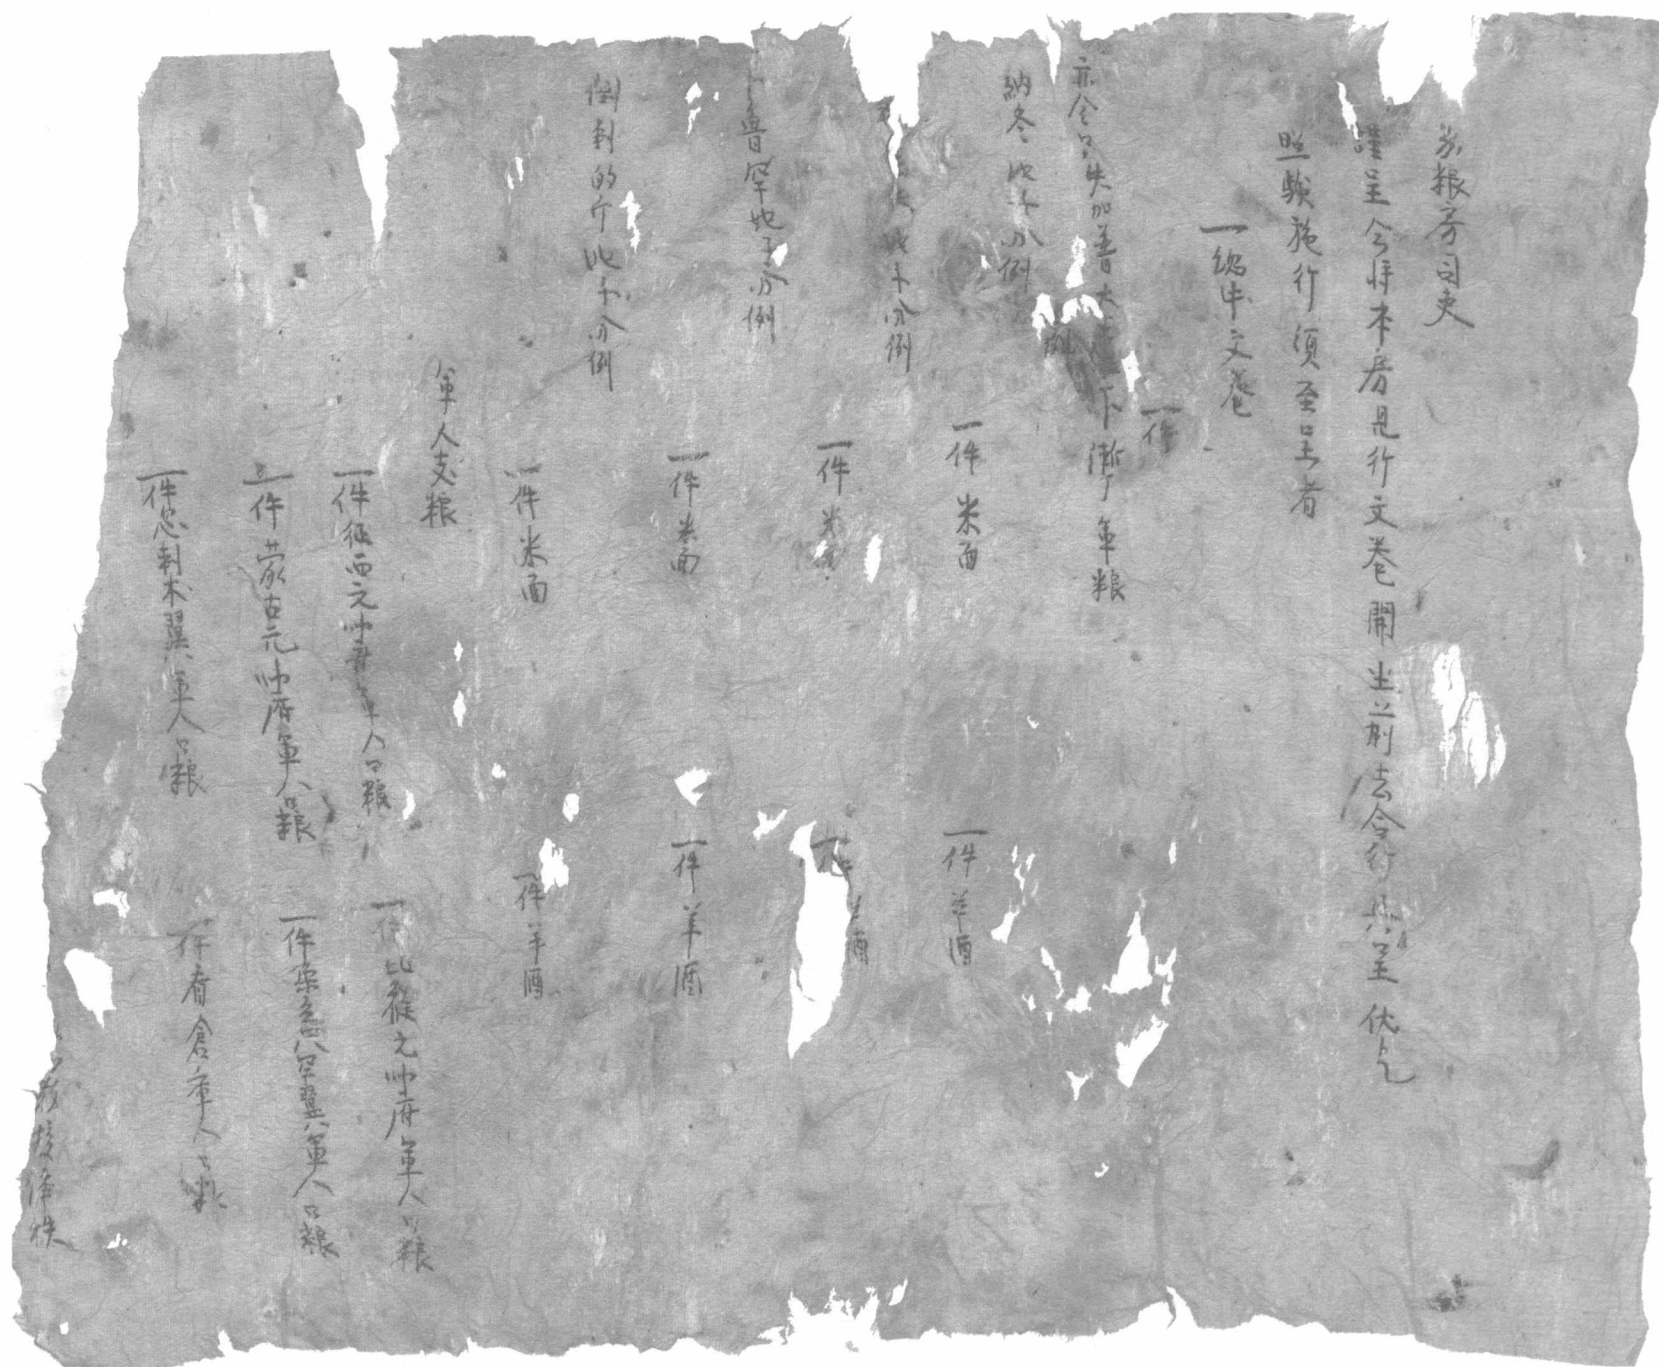 粮房司吏
謹呈今将本房見行文卷開坐前去合行具呈伏乞
照驗施行須至呈者
一緫中文卷
一件
亦令只失加普大 下漸丁軍粮
納冬妃子分例
一件米面
一件羊酒
妃子分例
一件米面
一件 羊酒
卜魯罕妃子分例
一件米面
一件羊酒
倒剌的斤妃子分例
一件米面
一件羊酒
軍人支粮
一件征西元帥府軍人口粮
一件北庭元帥府軍人口粮
一件蒙古元帥府軍人口粮
一件 翼軍人口粮
一件忽剌木翼軍人口粮
一件看倉庫人口粮